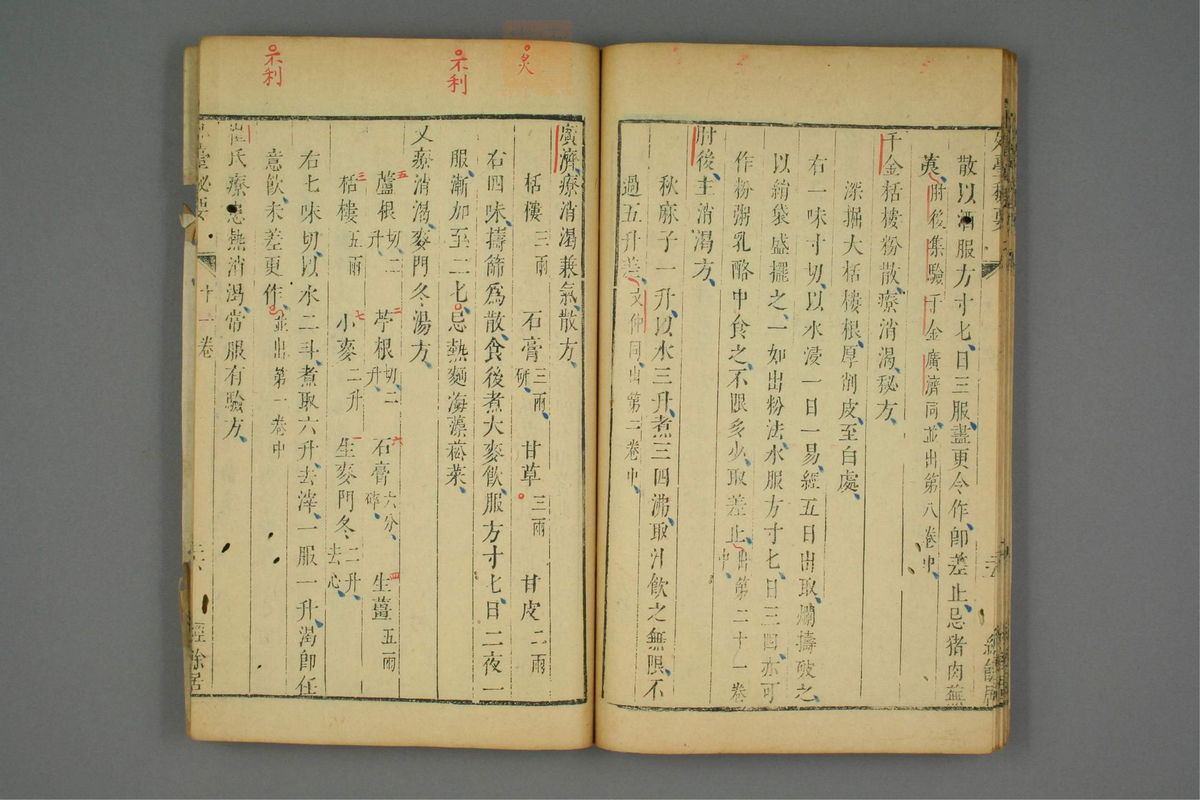 散以酒服方寸匕日三服盡更令作卽差止忌猪肉蕪
荑肘後集驗千金廣濟同並出第八卷中
千金栝樓粉散療消渴秘方
深掘大栝樓根厚削皮至白處
右一味寸切以水浸一日一易經五日出取爛擣破之
以絹袋盛擺之一如出粉法水服方寸匕日三四亦可
作粉粥乳酪中食之不限多少取差止出第二十一卷中
肘後主消渴方
秋麻子一升以水三升煮三四沸取汁飲之無限不
過五升差文仲同出第二卷中
炙
廣濟療消渴兼氣散方
栝樓三兩 石膏三兩研 甘草三兩 甘皮二兩
右四味擣篩爲散食後煮大麥飲服方寸匕日二夜一
服漸加至二匕忌熱麵海藻菘菜
示利
又療消渴麥門冬湯方
五蘆根切二升 二苧根切二升 六石膏六分碎 四生薑五兩
三栝樓五兩 七小麥二升 一生麥門冬二升去心
右七味切以水二斗煮取六升去滓一服一升渴卽任
意飲未差更作並出第一卷中
示利
崔氏療患熱消渴常服有驗方
臺秘要 十一卷 經餘居